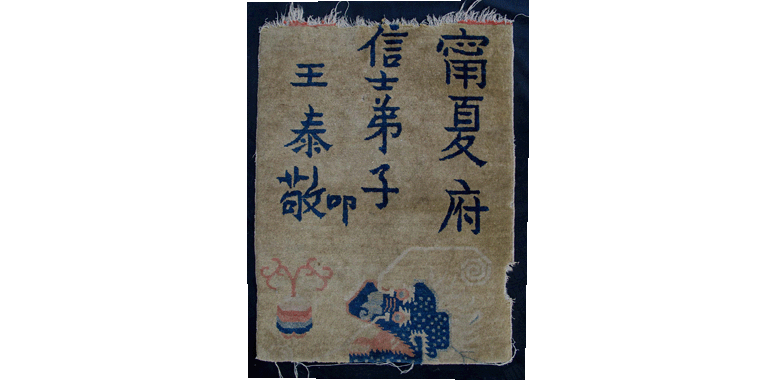 甯夏府
信士弟子
王泰敬叩